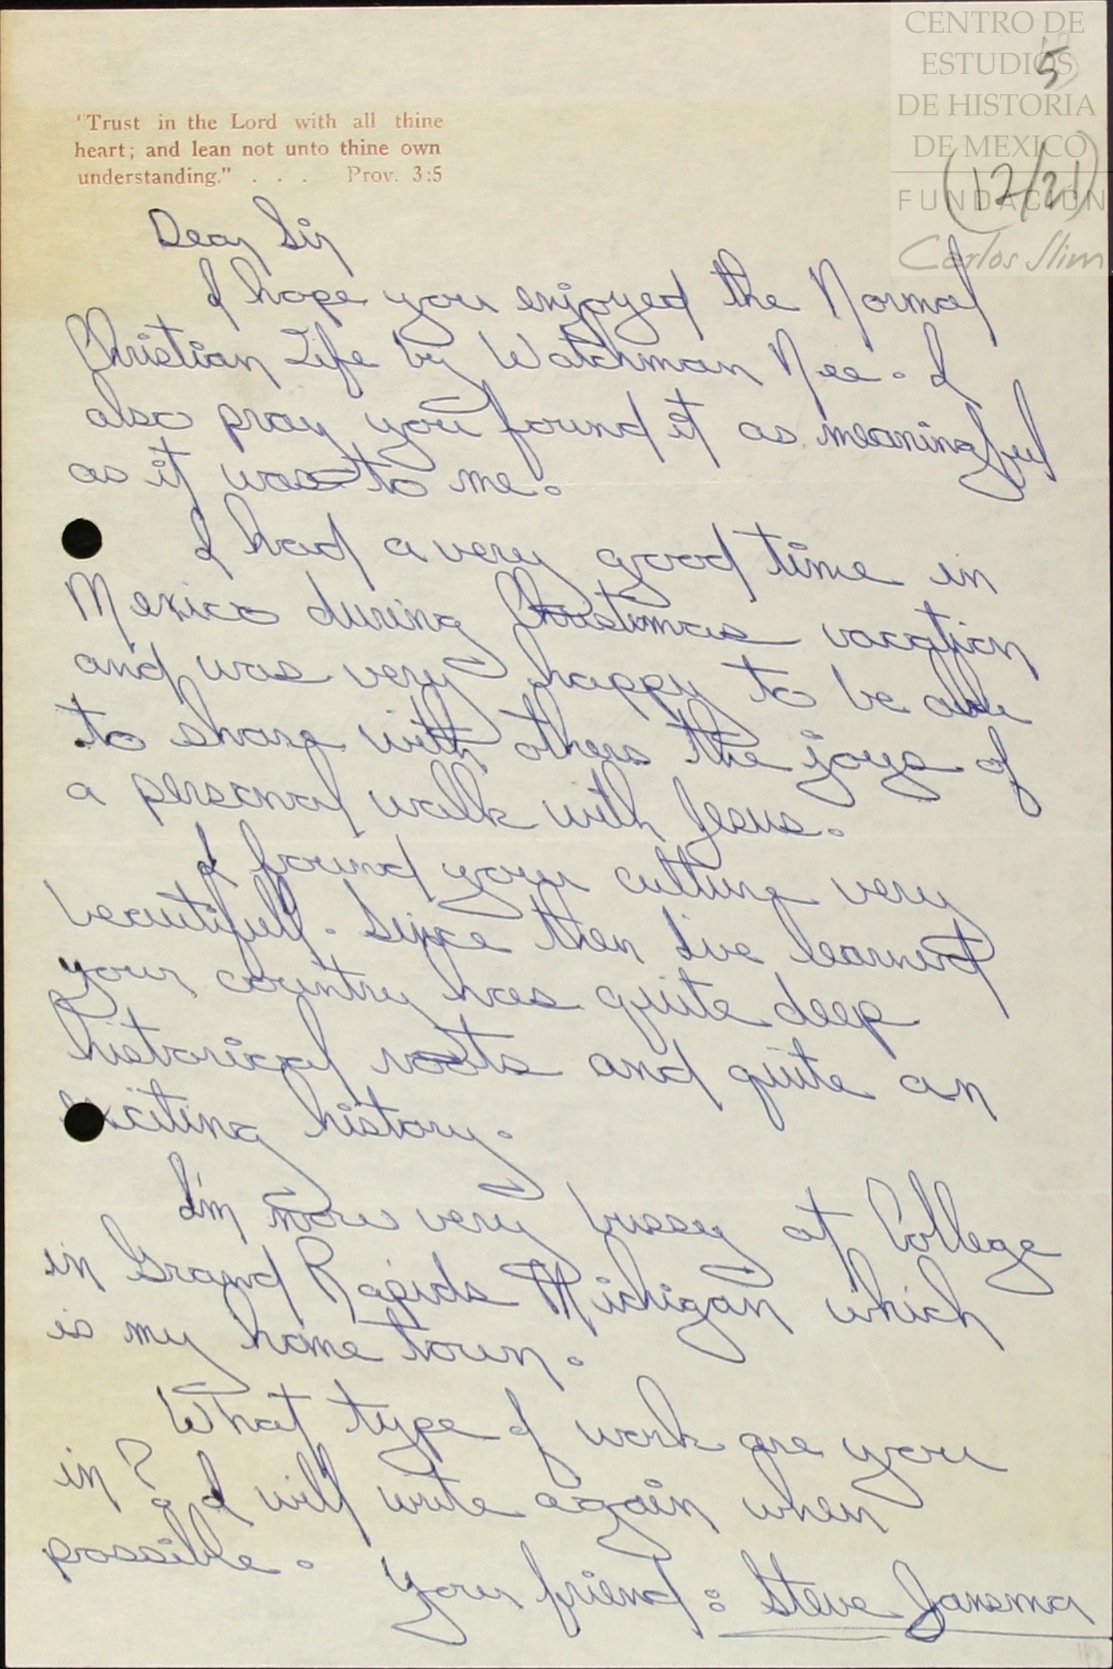 CENTRO DE
ESTUDIOS
DE HISTORIA
DE MEXICO
FUNDACIÓN
Carlos Slim
5
(12/21)
"Trust in the Lord with all thine
heart; and lean not unto thine own
understanding." . . . Prov. 3:5
Dear Sir
I hope you enjoyed the Normal
Christian Life by Watchman Nee. I
also pray you found it as meaningful
as it was to me.
I had a very good time in
Mexico during Christmas vacation
and was very happy to be able
to share with others the joys of
a personal walk with Jesus.
I found your culture very
beautifull. Since then I've learned
your country has quite deep
historical roots and quite an
exciting history.
I'm now very bussy at College
in Grand Rapids Michigan which
is my home town.
What type of work are you
in? I will write again when
possible.
Your friend: Steve Jansma